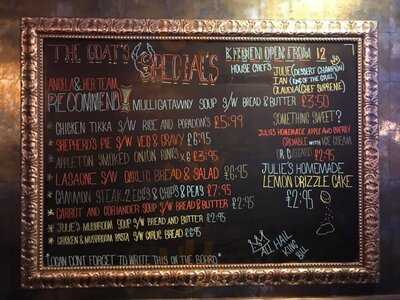 THE GOAT'S SPECIAL'S
ANGELA & HER TEAM
RECOMMEND
MULLIGATAWNY SOUP S/W BREAD & BUTTER £3.50
* CHICKEN TIKKA S/W RICE AND POPADOM'S £5.99
* SHEPHERD'S PIE S/W VEG & GRAVY £6.95
* APPLETON SMOKED ONION RINGS X6 £3.95
* LASAGNE S/W GARLIC BREAD & SALAD £6.95
* GAMMON STEAK: 2 EGGS & CHIPS & PEAS £7.95
* CARROT AND CORIANDER SOUP S/W BREAD & BUTTER £2.95
* JULIE'S MUSHROOM SOUP S/W BREAD AND BUTTER £2.95
* CHICKEN & MUSHROOM PASTA S/W GARLIC BREAD £6.95
*LOGAN DON'T FORGET TO WRITE THIS ON THE BOARD*
KITCHEN OPEN FROM 12
HOUSE CHEFS
JULIE (DESSERT CHAMPION)
IAN (KING OF THE GRILL)
CLAUDIA (CHEF SUPREME)
SOMETHING SWEET?
JULIES HOMEMADE APPLE AND CHERRY
CRUMBLE WITH ICE CREAM
OR CUSTARD £2.95
JULIE'S HOMEMADE
LEMON DRIZZLE CAKE
£2.95
ALL HAIL
KING
BILL